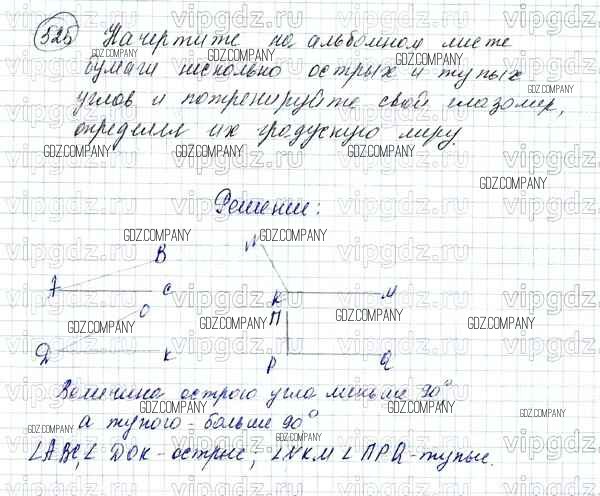 525 Начертите на альбомном листе
бумаги несколько острых и тупых
углов и потренируйте свой глазомер,
определяя их градусную меру.
Решение:
B
A
C
O
Д
K
N
K
M
П
P
Q
Величина острого угла меньше 90°
а тупого - больше 90°
∠ABC, ∠ДОК - острые; ∠NKM ∠ПРQ - тупые.
GDZ.COMPANY
vipgdz.ru